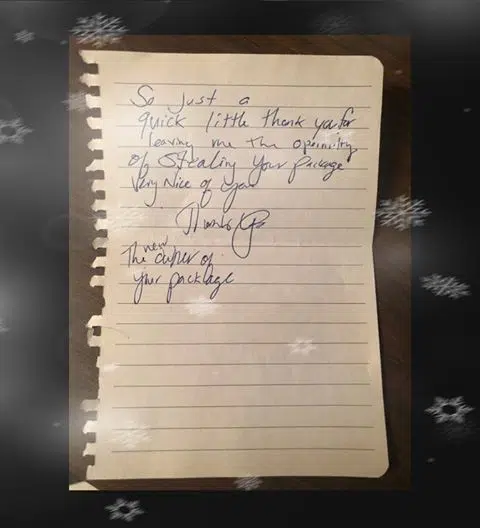 So Just a
quick little thank you for
leaving me the
of stealing your package
Very Nice of you
The new owner of
your package